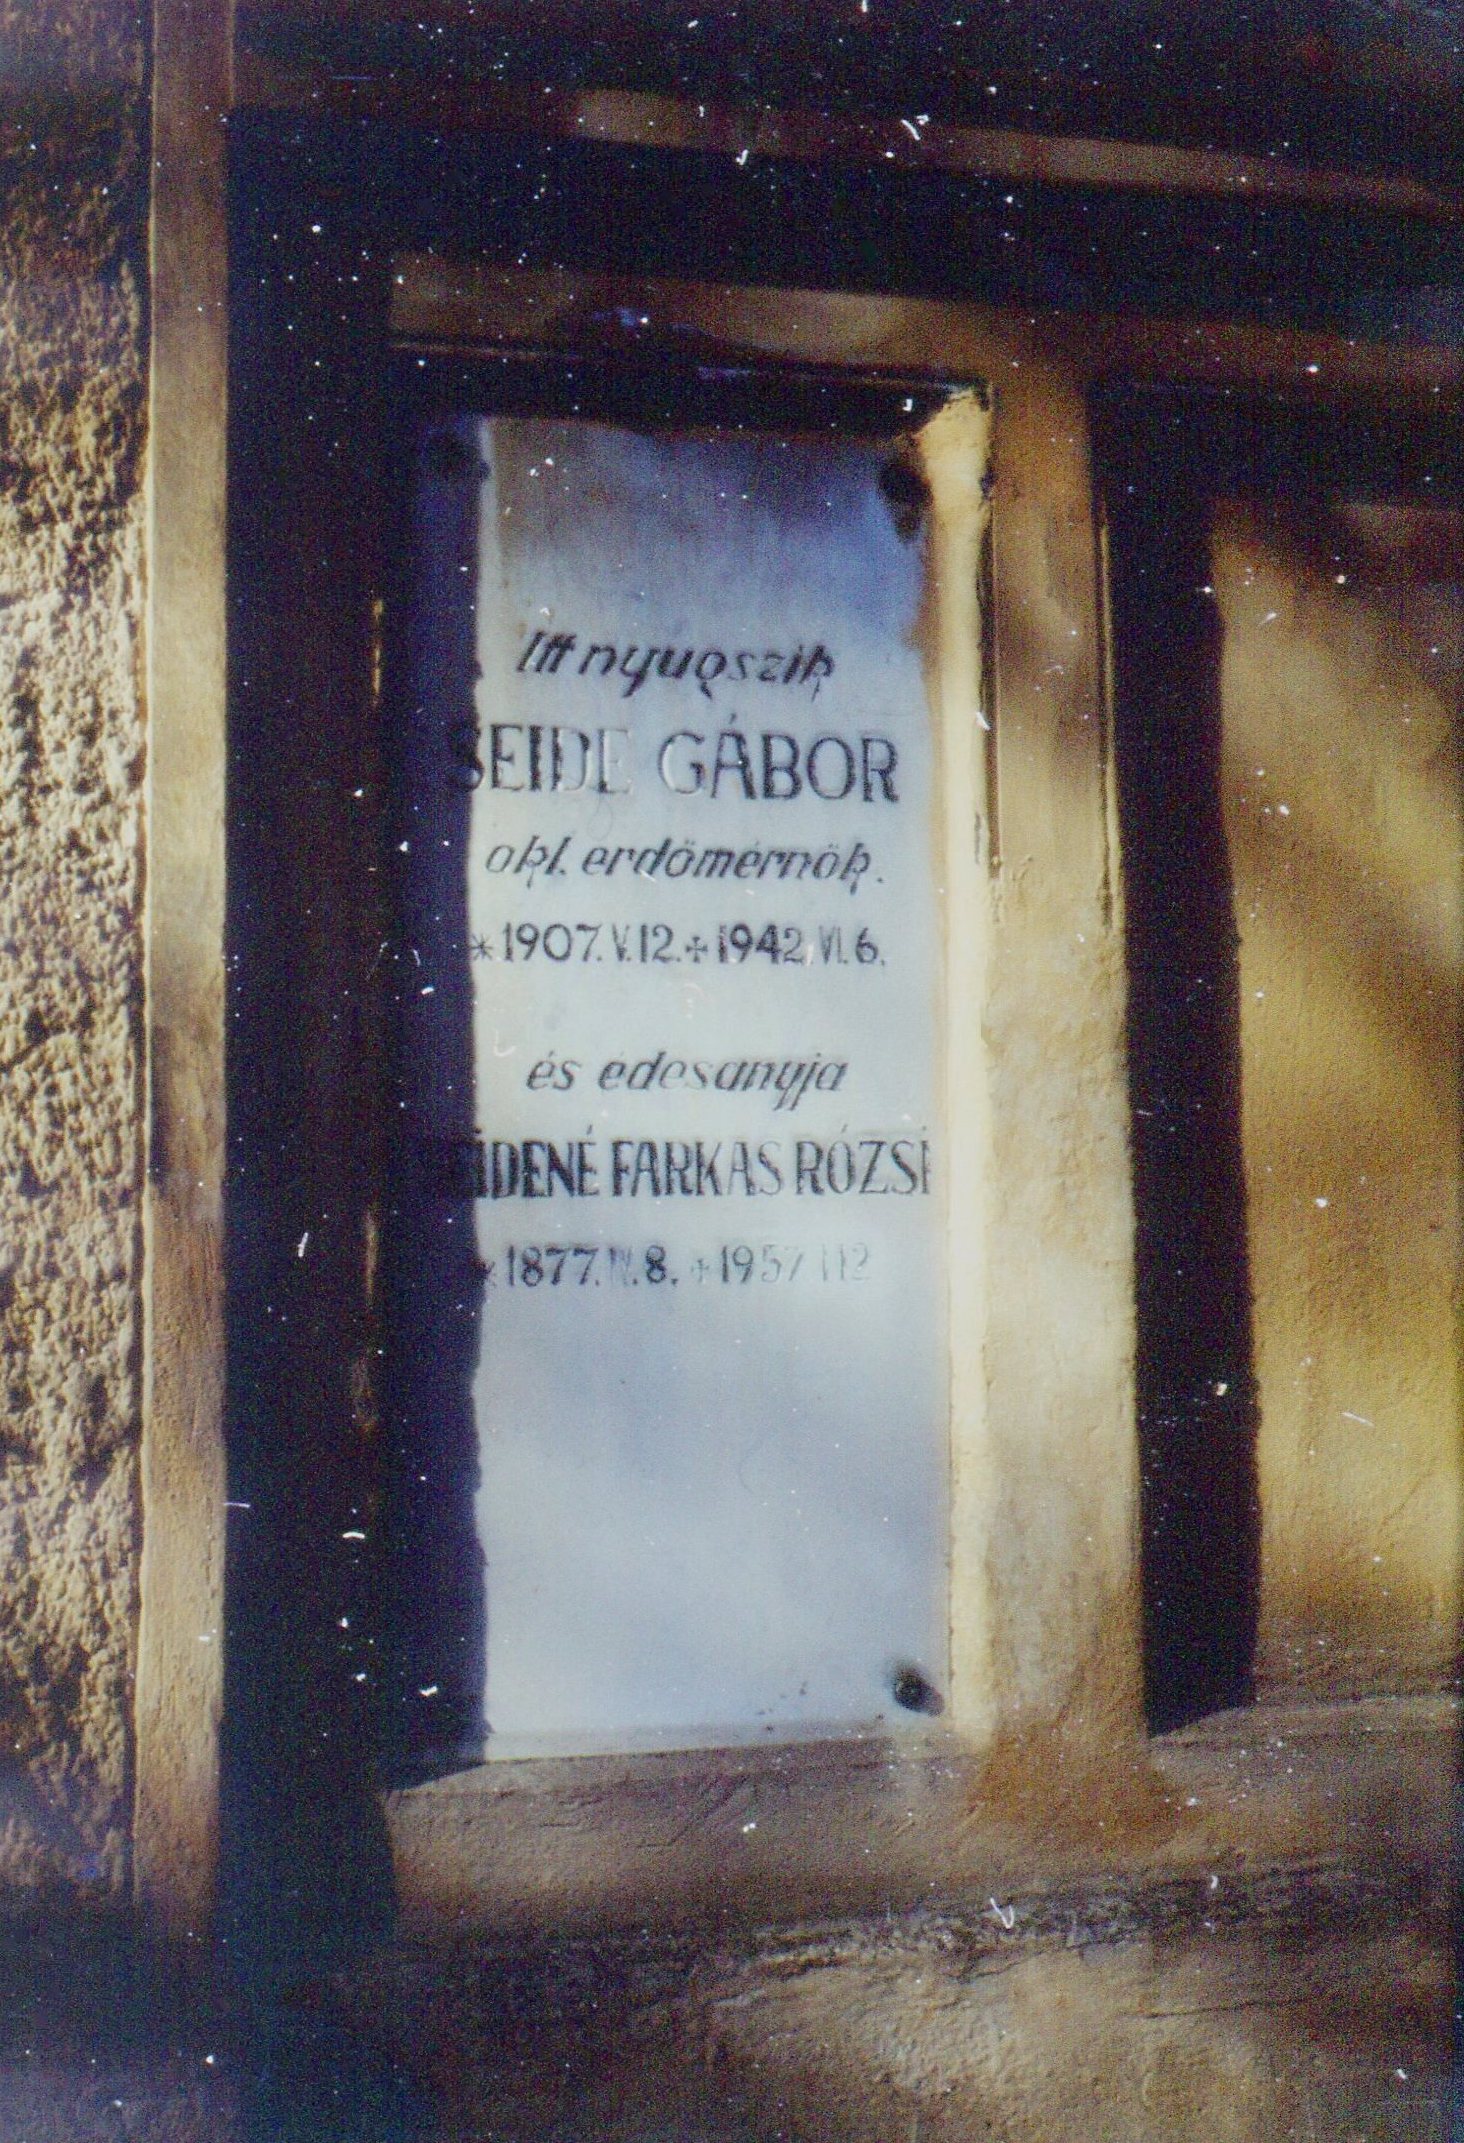 Itt nyugszik
SEIDE GÁBOR
okl. erdőmérnök.
* 1907. V. 12. + 1942. VI. 6.
és édesanyja
SEIDENÉ FARKAS RÓZSI
* 1877. IV. 8. + 1957. I 12